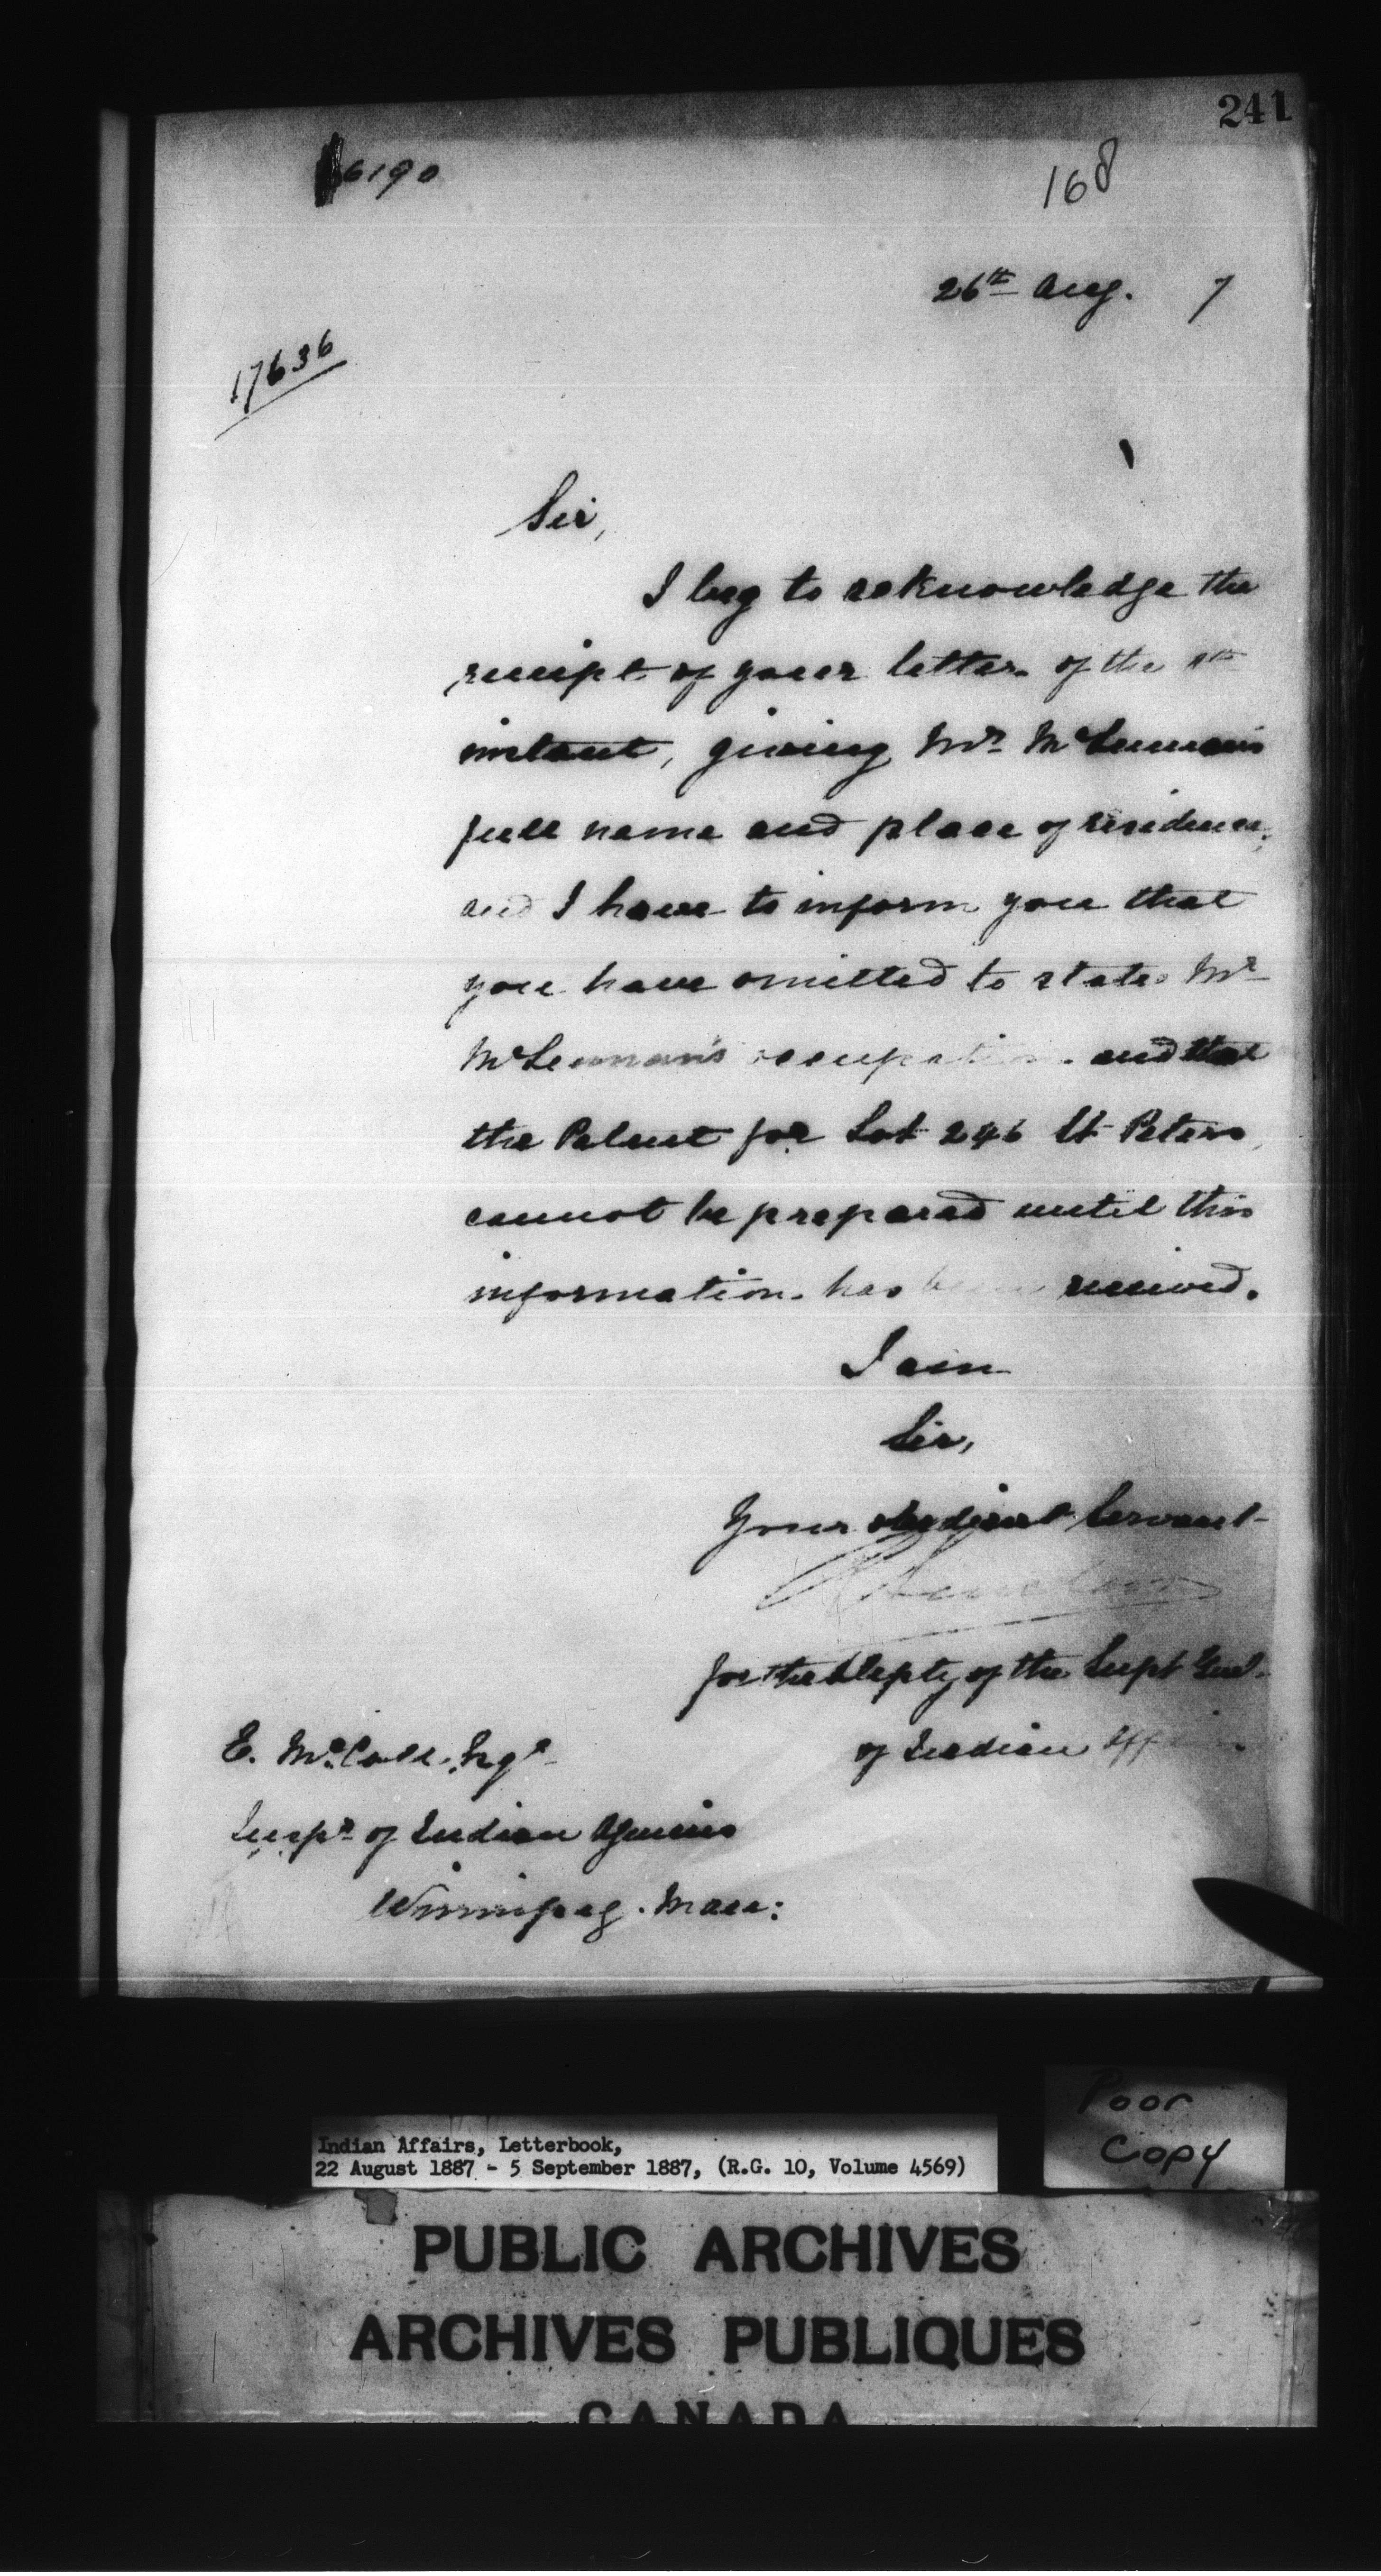 241
6190
168
26th Aug. 7
17636
Sir,
I beg to acknowledge the
receipt of your letter of the
instant, giving Mr. McLennan's
full name and place of residence,
and I have to inform you that
you have omitted to state Mr
McLennan's occupation and that
the Patent for Lot 246 St Peters
cannot be prepared until this
information has been received.
I am
Sir,
Your obedient Servant
for the Depty of the Supt Genl.
of Indian Affairs
E. McColl, Esqr
Inspr of Indian Agencies
Winnipeg. Man:
Poor
Copy
Indian Affairs, Letterbook,
22 August 1887 - 5 September 1887, (R.G. 10, Volume 4569)
PUBLIC ARCHIVES
ARCHIVES PUBLIQUES
CANADA